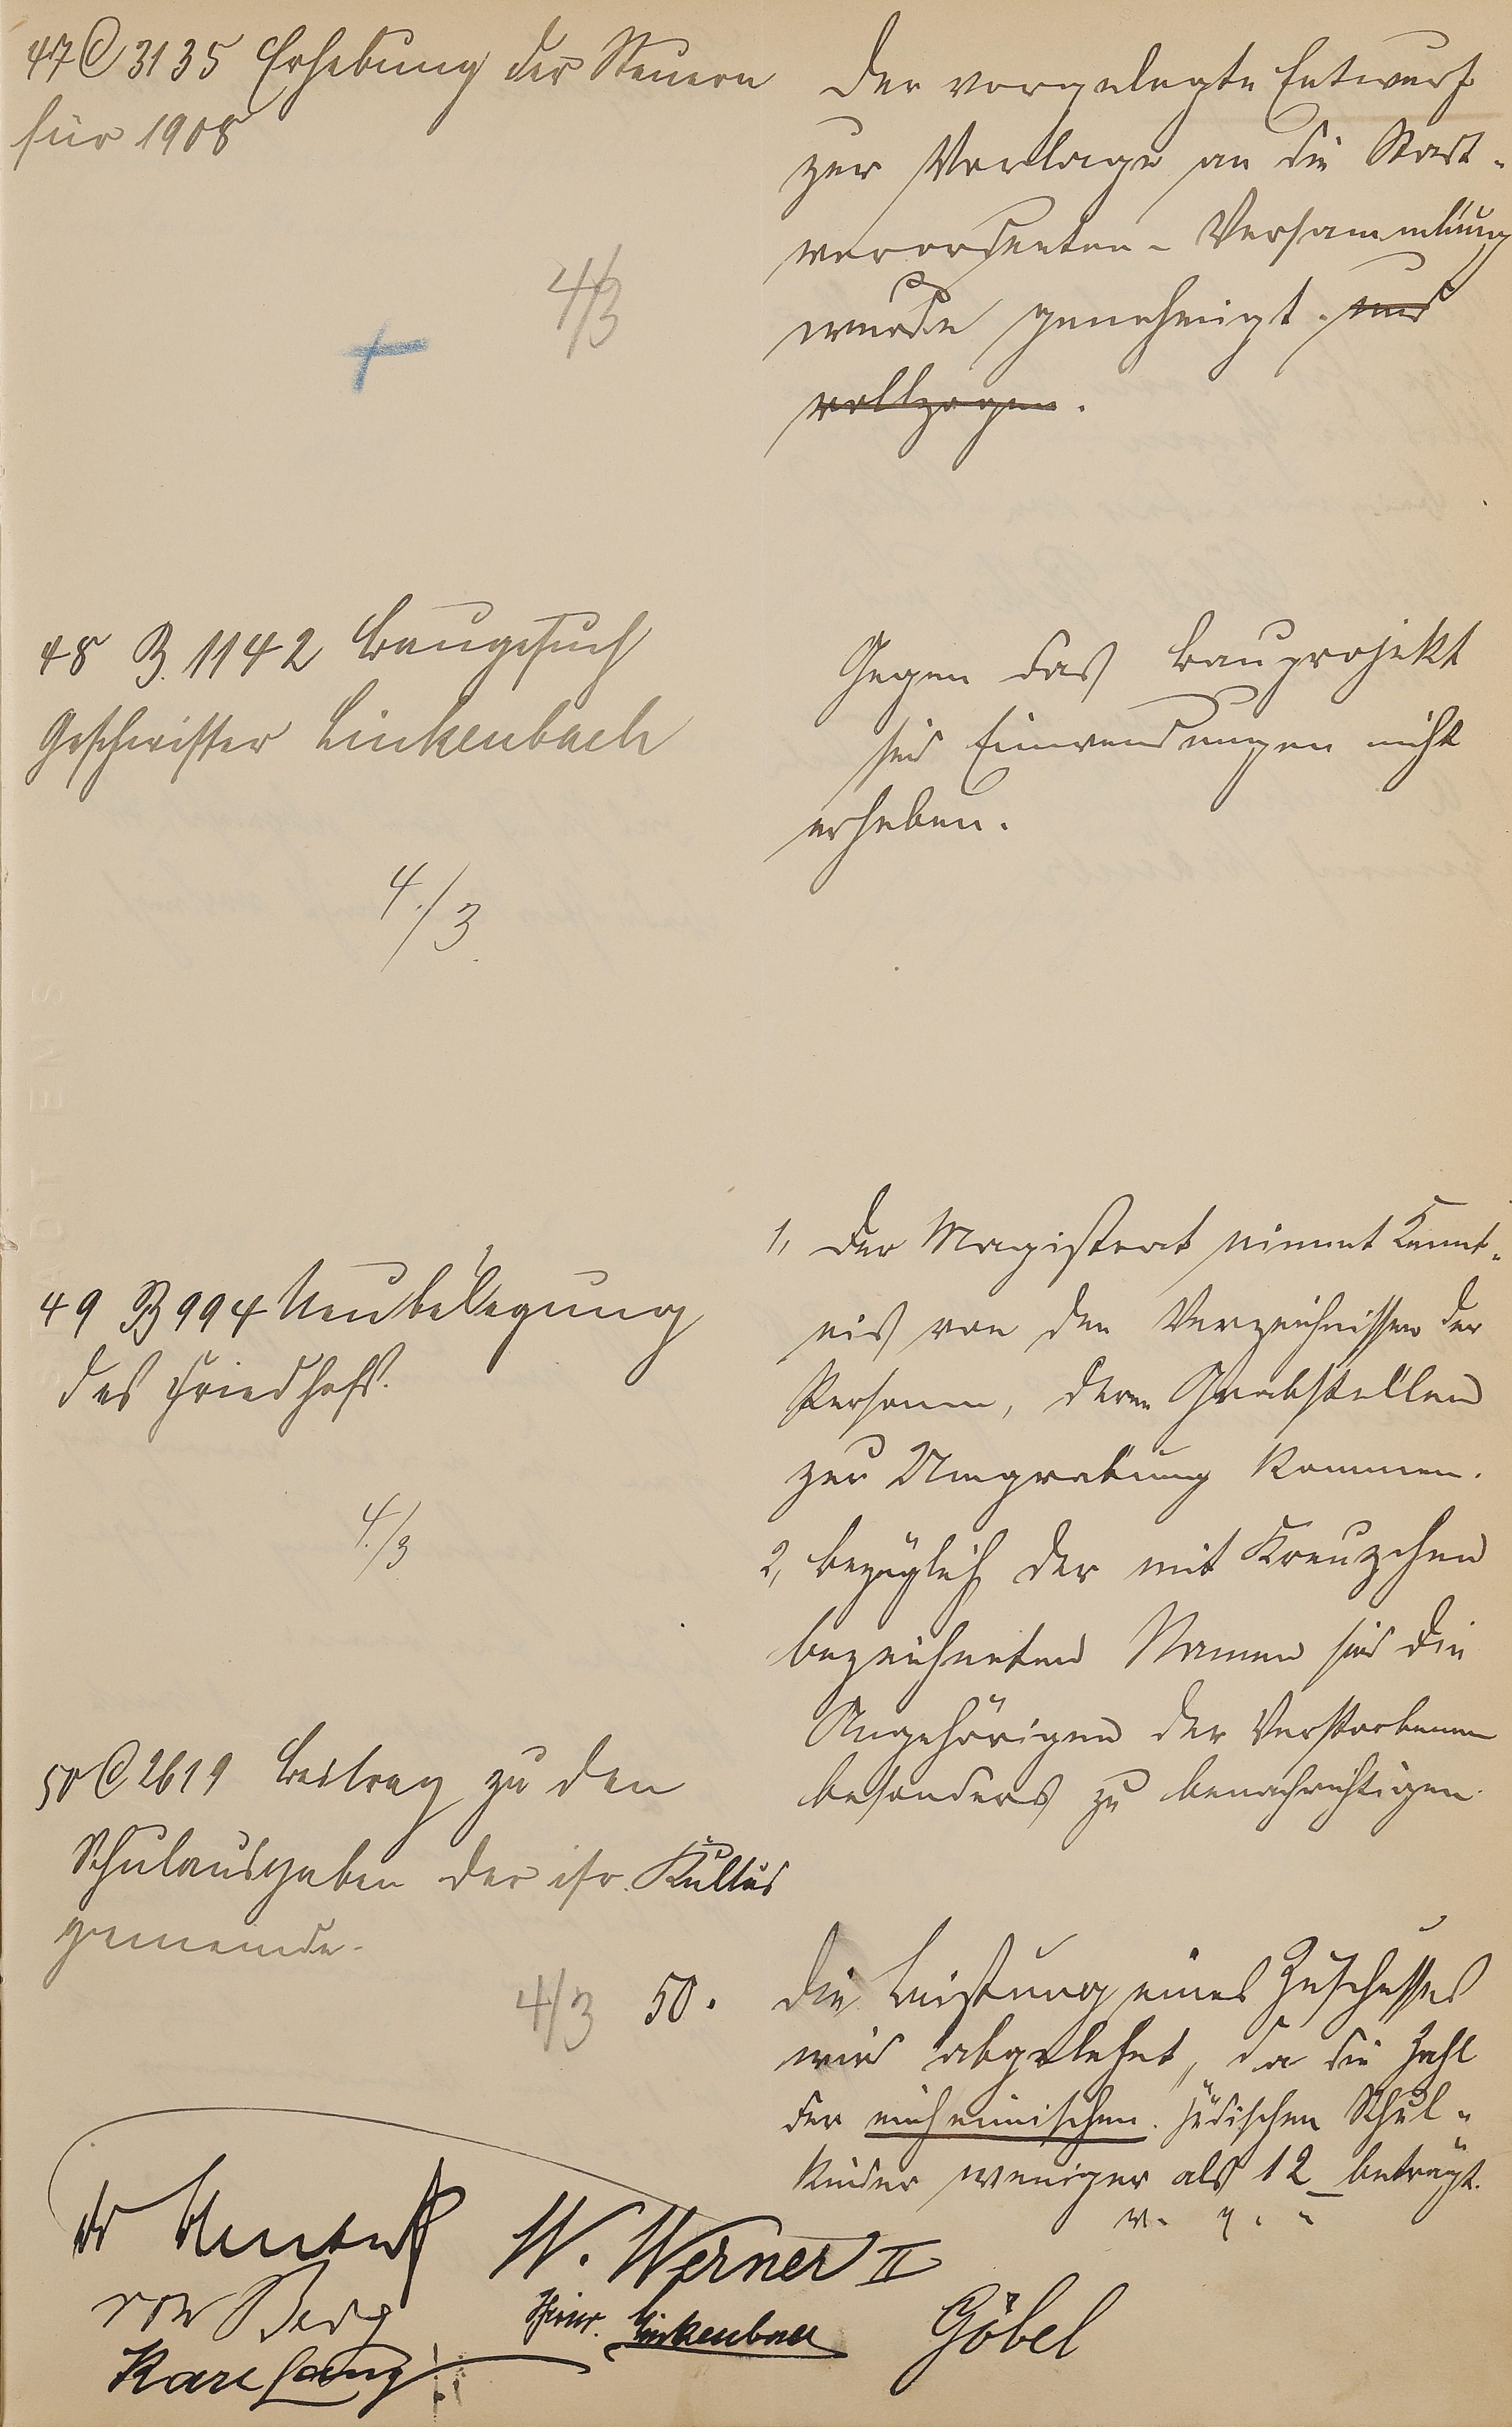 47 C 3135 Erhebung der Steuern
für 1908
4/3
Der vorgelegte Entwurf
zur Vorlage an die Stadt-
verordneten-Versammlung
wurde genehmigt. und
vollzogen.
48 B. 1142 Baugesuch
Geschwister Linkenbach
4./3.
Gegen das Bauprojekt
sind Einwendungen nicht
erheben.
49 B 994 Neubelegung
des Friedhofs.
4./3
1, Der Magistrat nimmt Kennt-
nis von den Verzeichnissen der
Personen, deren Grabstellen
zur Umgrabung kommen.
2, bezüglich der mit Kreuzchen
bezeichneten Namen sind die
Angehörigen der Verstorbenen
besonders zu benachrichtigen.
50 C 2619 Beitrag zu den
Schulausgaben der isr. Kultus
gemeinde.
4/3
50. Die Leistung eines Zuschusses
wird abgelehnt, da die Zahl
der einheimischen jüdischen Schul-
kinder weniger als 12 beträgt.
v. g. u.
W. Werner II
von Berg
Heinr. Linkenbach
Göbel
Karl Lang